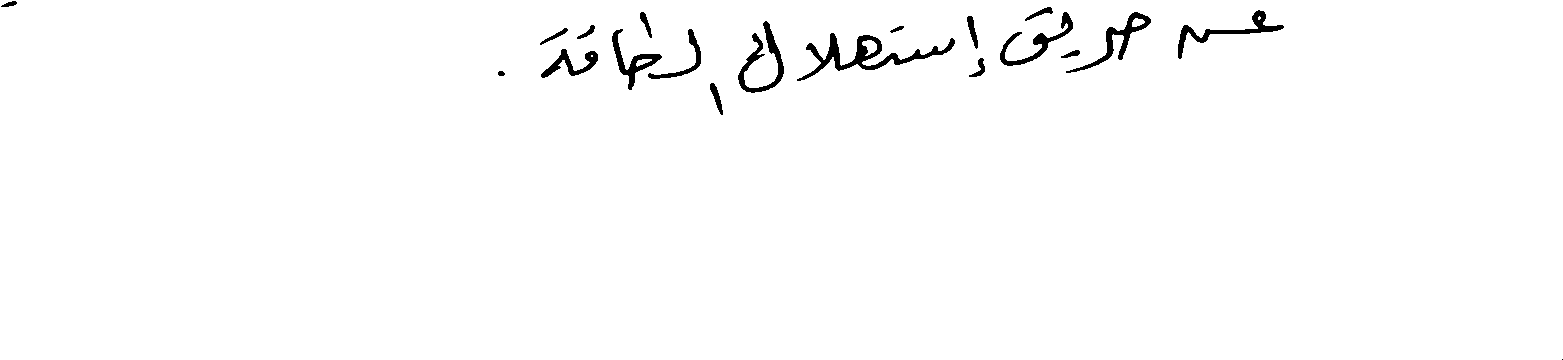 عن طريق إستهلاك الطاقة .